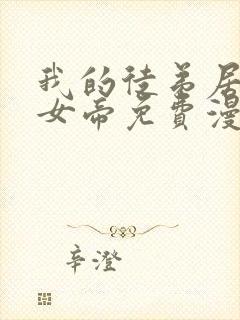 我的徒弟居
女帝免費漫
辛澄